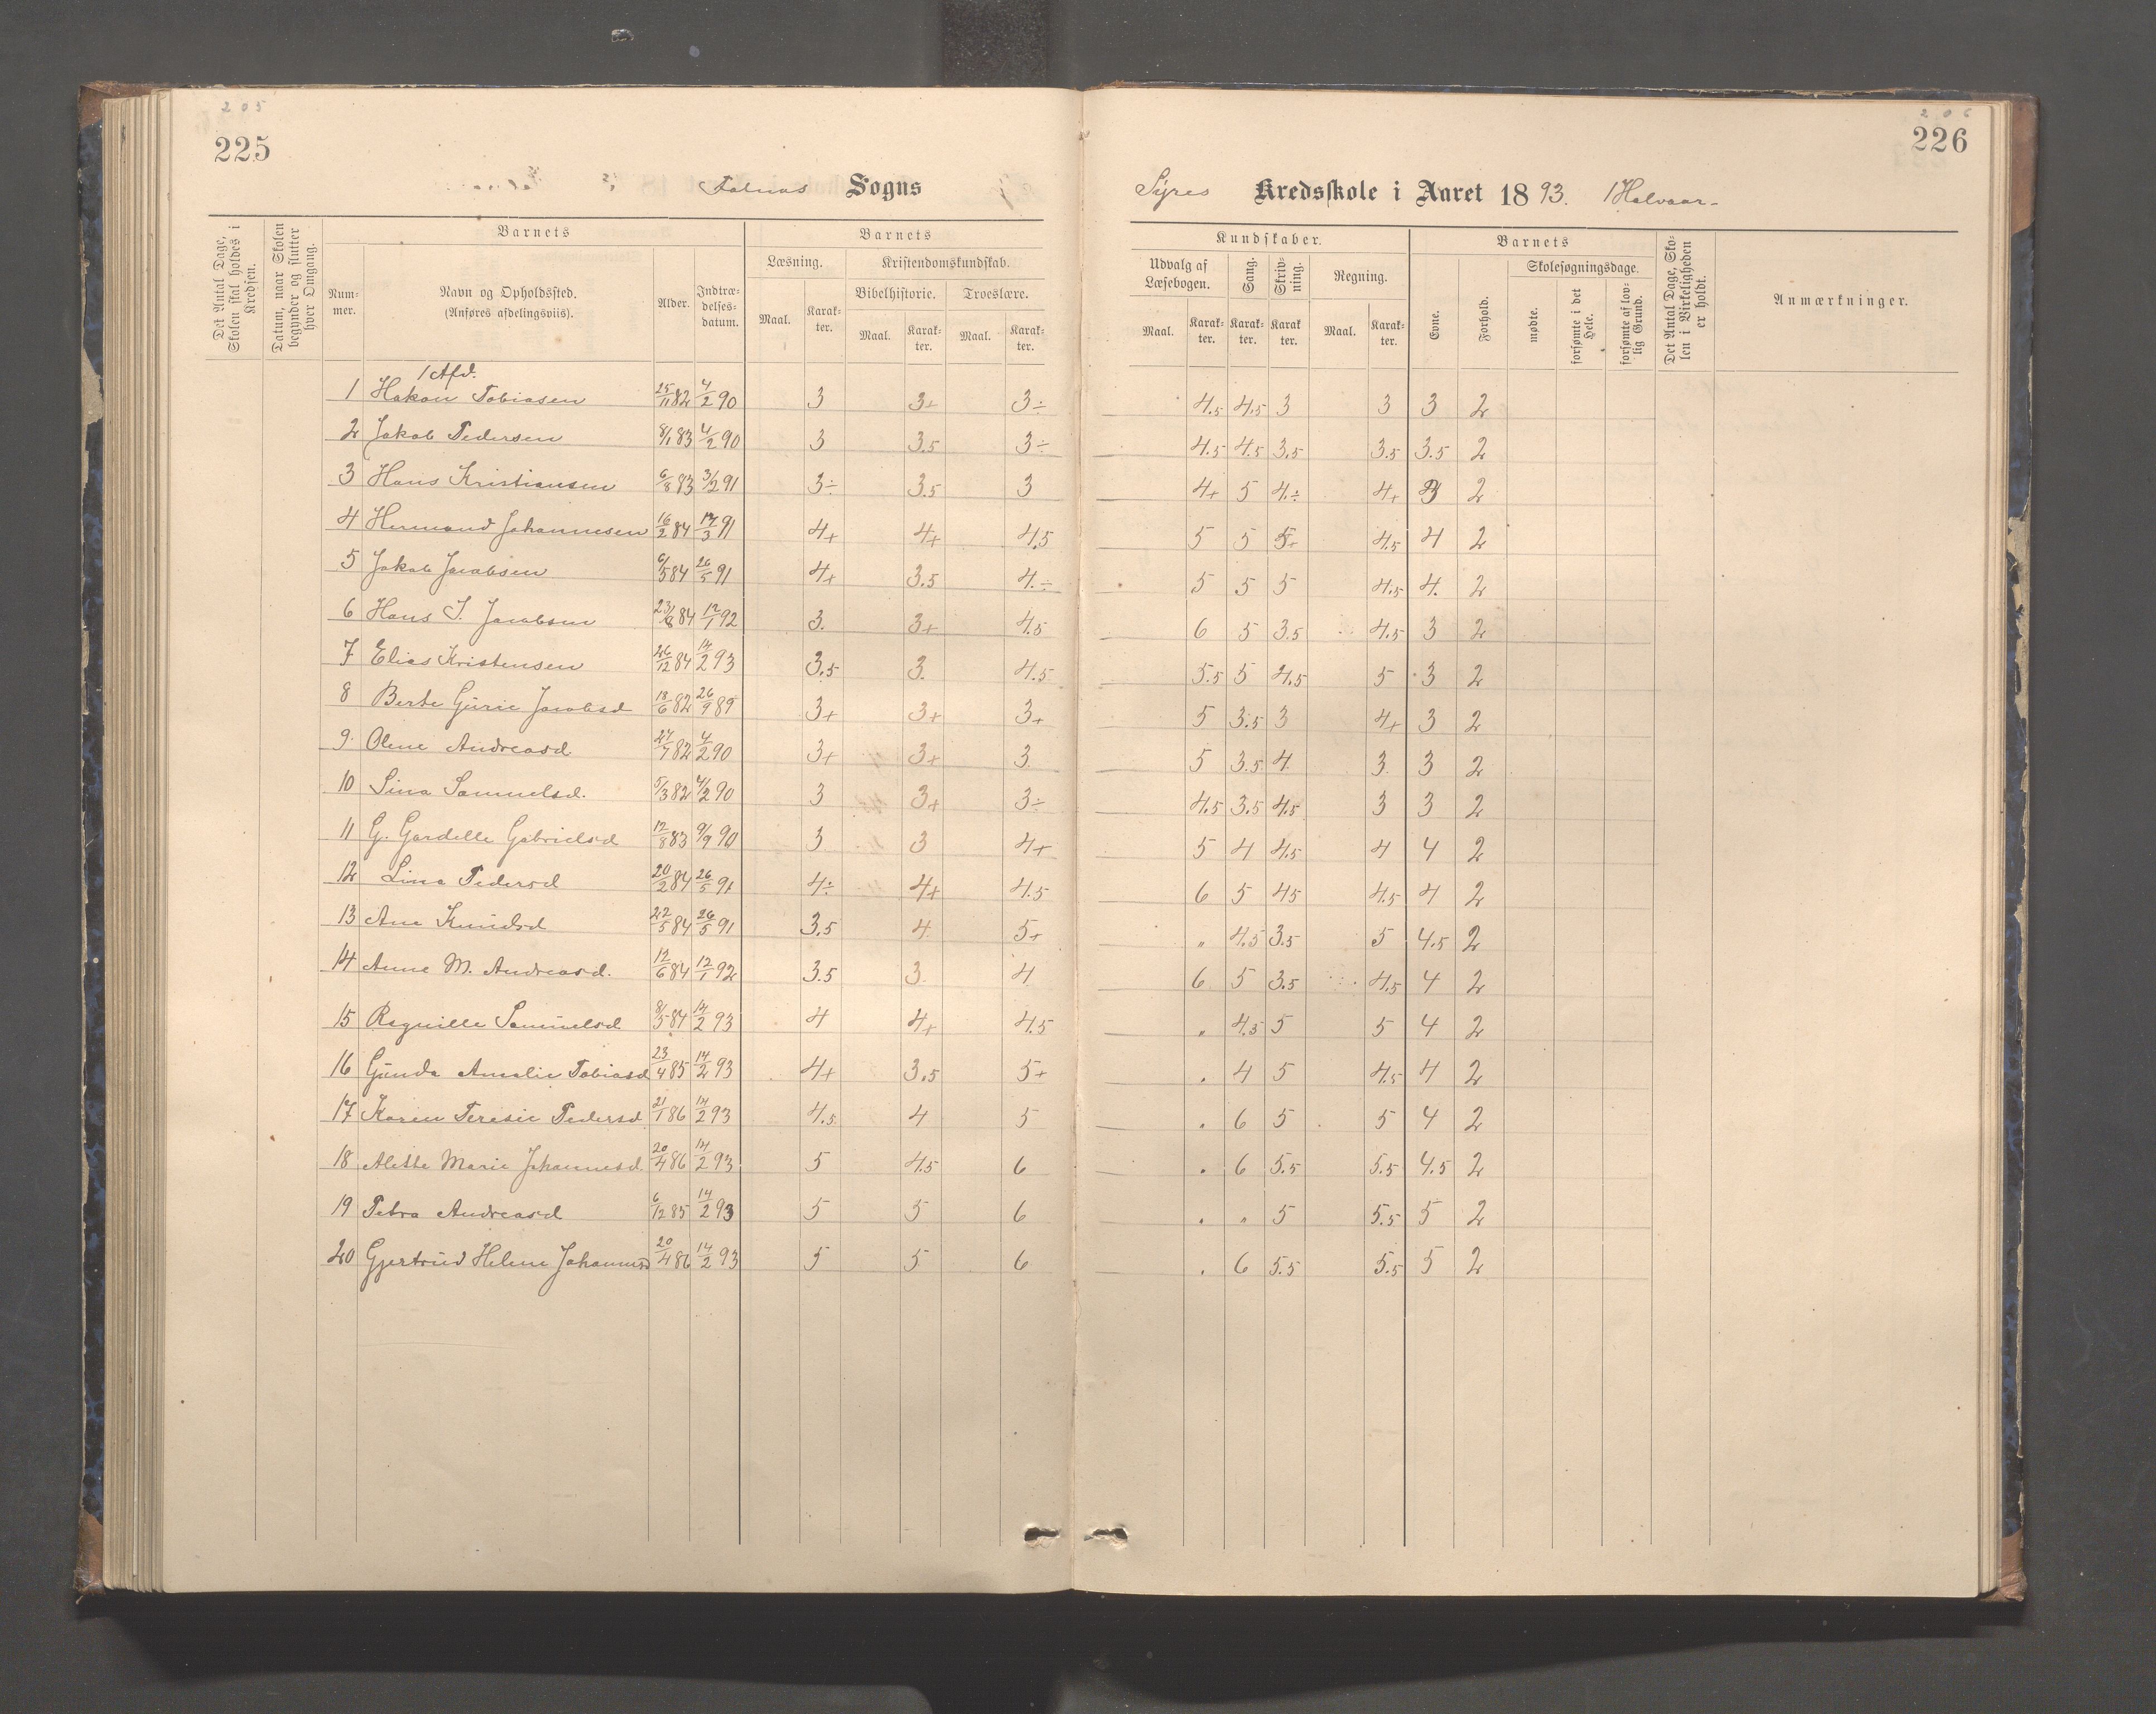 205
225
Falnæs Sogns
Det Antal Dage, Skolen skal holdes i Kredsen.
Datum, naar Skolen begynder og slutter hver Omgang.
Barnets
Barnets
Num-mer.
Navn og Opholdssted.
(Anføres afdelingsviis).
Alder.
Indtræ-delses-datum.
Læsning.
Kristendomskundskab.
Bibelhistorie.
Troeslære.
Maal. Karak-ter. Maal. Karak-ter. Maal. Karak-ter.
1 Afd.
1 Hakon Tobiasen 25/11 82 4/2 90 3 3+ 3÷
2 Jakob Pedersen 8/1 83 4/2 90 3 3.5 3÷
3 Hans Kristiansen 6/8 83 3/2 91 3÷ 3.5 3
4 Hermand Johannesen 16/2 84 17/3 91 4+ 4+ 4.5
5 Jakob Jacobsen 6/5 84 26/5 91 4+ 3.5 4÷
6 Hans J. Jacobsen 23/8 84 12/1 92 3. 3+ 4.5
7 Elias Kristensen 26/12 84 14/2 93 3.5 3. 4.5
8 Berte Gurie Jacobsd 18/6 82 26/9 89 3+ 3+ 3+
9. Olene Andreasd. 27/7 82 4/2 90 3+ 3+ 3
10 Sina Samuelsd. 5/3 82 4/2 90 3 3+ 3÷
11 G. Gardelle Gabrielsd 12/8 83 9/9 90 3 3 4+
12 Lina Pedersd 20/2 84 26/5 91 4÷ 4+ 4.5
13 Ane Knudsd 22/5 84 26/5 91 3.5 4. 5+
14 Anne M. Andreasd. 12/6 84 12/1 92 3.5 3. 4
15 Ragnille Samuelsd 8/5 84 14/2 93 4 4+ 4.5
16 Gunda Amalie Tobiasd 23/4 85 14/2 93 4+ 3.5 5+
17 Karen Teresie Pedersd 21/1 86 14/2 93 4.5 4 5
18 Alette Marie Johannesd. 20/4 86 14/2 93 5 4.5 6
19 Petra Andreasd 6/12 85 14/2 93 5 5 6
20 Gjertrud Helene Johannesd 20/4 86 14/2 93 5 5 6
206
226
Syres Kredsskole i Aaret 1893. 1 Halvaar.
Kundskaber.
Barnets
Udvalg af Læsebogen.
Sang.
Skriv-ning.
Regning.
Evne.
Forhold.
Skolesøgningsdage.
mødte.
forsømte i det Hele.
forsømte af lov-lig Grund.
Det Antal Dage, Sko-len i Virkeligheden er holdt.
Anmærkninger.
Maal. Karak-ter. Karak-ter. Karak ter. Maal. Karak-ter.
4.5 4.5 3 3 3 2
4.5 4.5 3.5 3.5 3.5 2
4+ 5 4÷ 4+ 3 2
5 5 5+ 4.5 4 2
5 5 5 4.5 4. 2
6 5 3.5 4.5 3 2
5.5 5 4.5 5 3 2
5 3.5 3 4+ 3 2
5 3.5 4 3. 3 2
4.5 3.5 4.5 3 3 2
5 4 4.5 4 4 2
6 5 45 4.5 4 2
" 4.5 3.5 5 4.5 2
6 5 3.5 4.5 4 2
" 4.5 5 5 4 2
. 4 5 4.5 4 2
. 6 5 5 4 2
. 6 5.5 5.5 4.5 2
. " 5 5.5 5 2
. 6 5.5 5.5 5 2